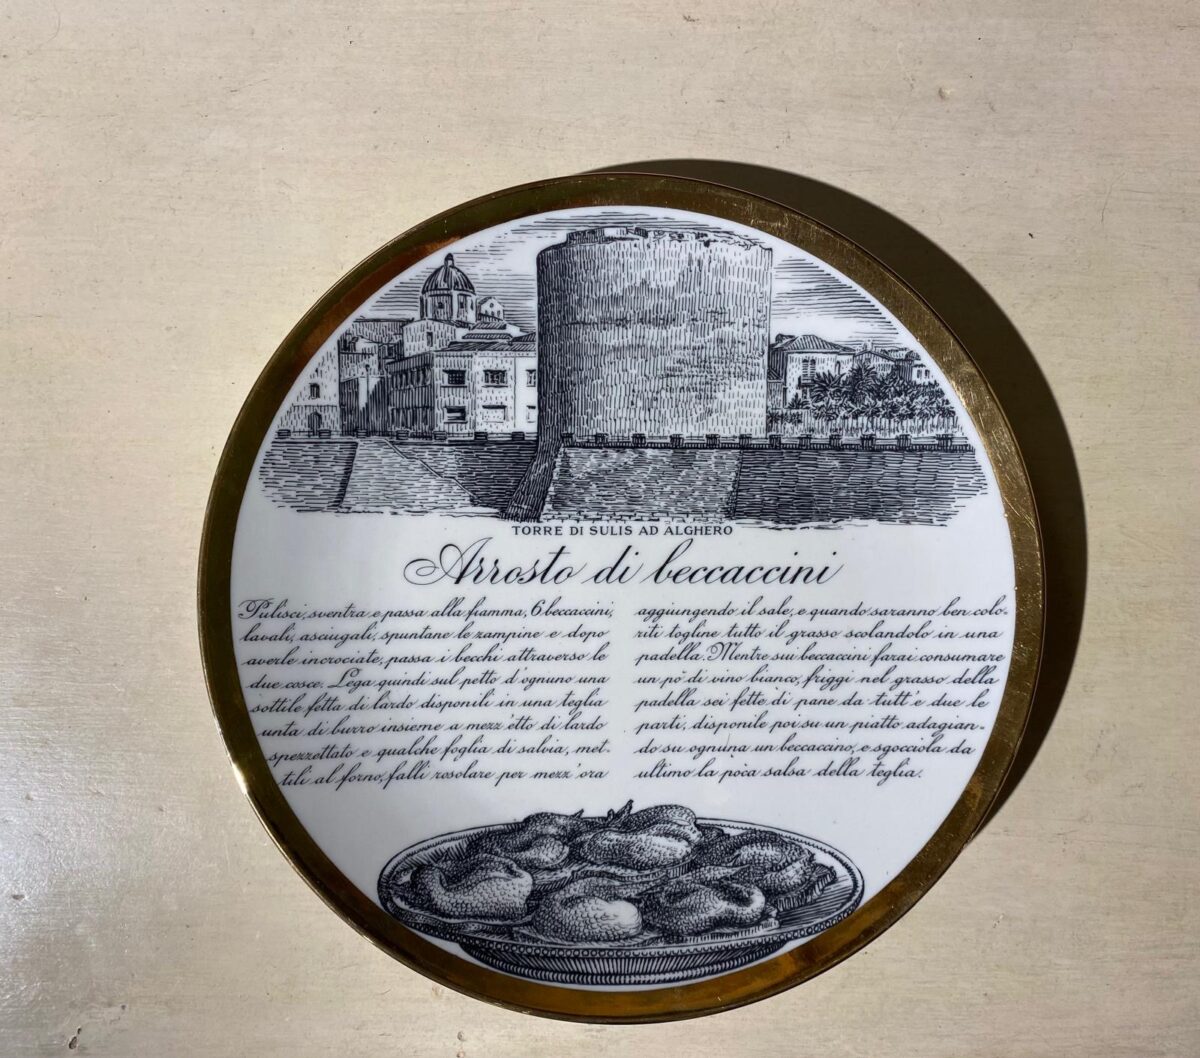 TORRE DI SULIS AD ALGHERO
Arrosto di beccaccini
Pulisci, sventra e passa alla fiamma, 6 beccaccini,
lavali, asciugali, spuntane le zampine e dopo
averle incrociate, passa i becchi attraverso le
due cosce. Lega quindi sul petto d'ognuno una
sottile fetta di lardo disponili in una teglia
unta di burro insieme a mezz'etto di lardo
spezzettato e qualche foglia di salvia, met-
tili al forno, falli rosolare per mezz'ora
aggiungendo il sale, e quando saranno ben colo-
riti togline tutto il grasso scolandolo in una
padella. Mentre sui beccaccini farai consumare
un pò di vino bianco, friggi nel grasso della
padella sei fette di pane da tutt'e due le
parti, disponile poi su un piatto adagian-
do su ognuna un beccaccino, e sgocciola da
ultimo la pòca salsa della teglia.